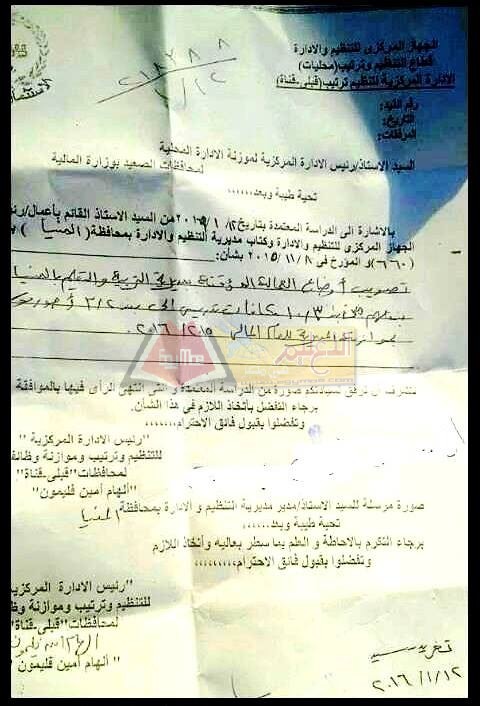 الجهاز المركزى للتنظيم والادارة
قطاع التنظيم وترتيب (محليات)
الادارة المركزية للتنظيم ترتيب (قبلى-قناة)
رقم القيد:
التاريخ:
المرفقات:
٢١٨٧٨٨
السيد الاستاذ/رئيس الادارة المركزية لموزنة الادارة المحلية
لمحافظات الصعيد بوزارة المالية
تحية طيبة وبعد......
بالاشارة الى الدراسة المعتمدة بتاريخ ٢٠١٥/١٠/١٢ من السيد الاستاذ القائم بأعمال/رئيس
الجهاز المركزى للتنظيم والادارة وكتاب مديرية التنظيم والادارة بمحافظة ( المنيا )
(٦٦٠) و المؤرخ فى ٢٠١٥/١١/٨ بشأن:
تصويب أوضاع العمالة المؤقتة بمديرية التربية والتعليم بالمنيا
مكافآت تدريس الى بند ٣/٢ أجور
بموازنة المديرية للعام المالى ٢٠١٥/٢٠١٦.
نتشرف ان نرفق لسيادتكم صورة من الدراسة المعتمدة و التى انتهى الرأى فيها بالموافقة
برجاء التفضل بأتخاذ اللازم فى هذا الشأن.
وتفضلوا بقبول فائق الاحترام.......
"رئيس الادارة المركزية"
للتنظيم وترتيب وموازنة وظائف
لمحافظات "قبلى-قناة"
"ألهام أمين قليمون"
صورة مرسلة للسيد الاستاذ/مدير مديرية التنظيم و الادارة بمحافظة المنيا
تحية طيبة وبعد......
برجاء التكرم بالاحاطة و العلم بما سطر بعاليه وأتخاذ اللازم
وتفضلوا بقبول فائق الاحترام.........
"رئيس الادارة المركزية
للتنظيم وترتيب و موازنة وظا
لمحافظات "قبلى-قناة"
" ألهام أمين قليمون "
تغريد سيد
٢٠١٦/١/١٢